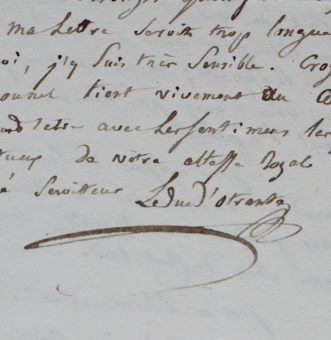 ma Lettre seroit trop longue
oi, j'y suis très sensible. Cro
onnel tient vivement au
avec les sentimens les
tueux de votre altesse Royal
é serviteur Le duc d'otrante